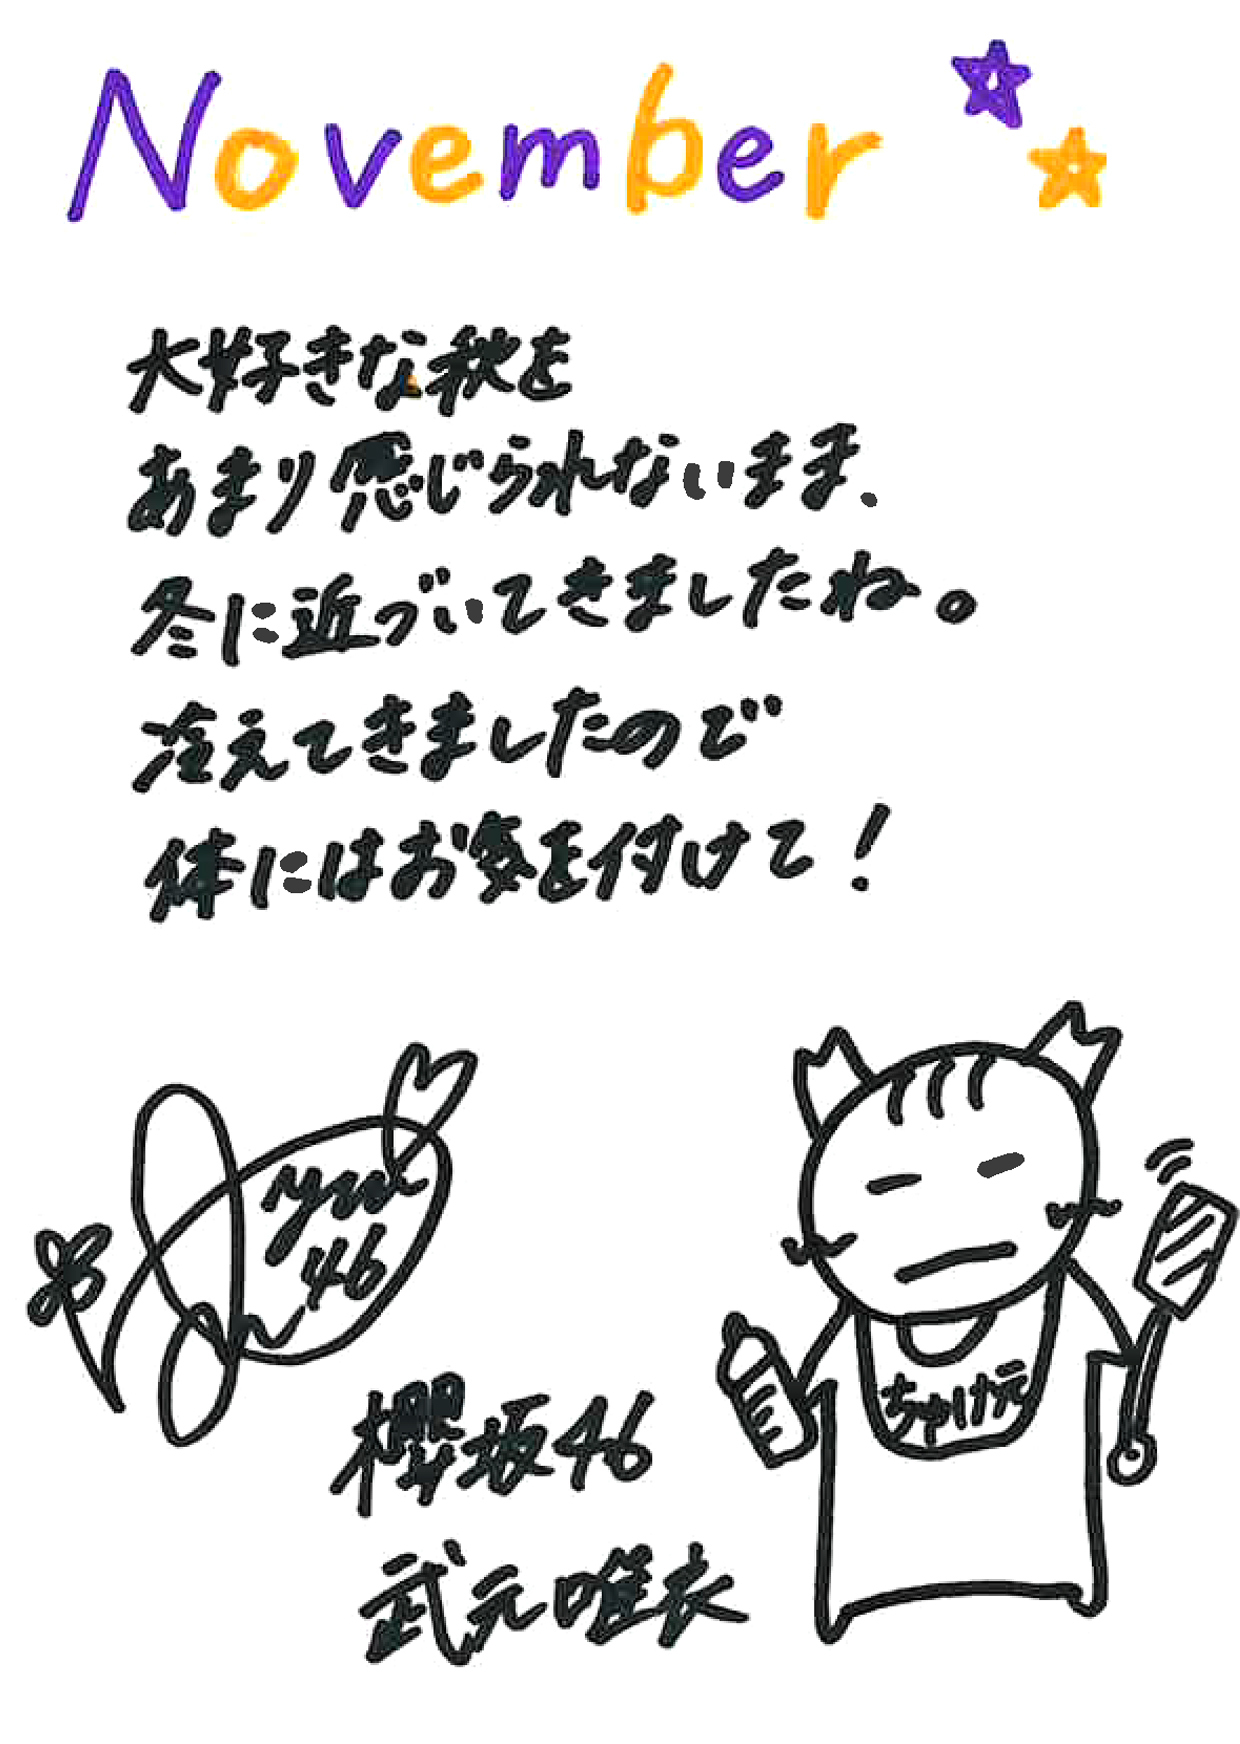 November
大好きな秋を
あまり感じられないまま、
冬に近づいてきましたね。
冷えてきましたので
体にはお気を付けて！
46
ちゅけ元
櫻坂46
武元唯衣